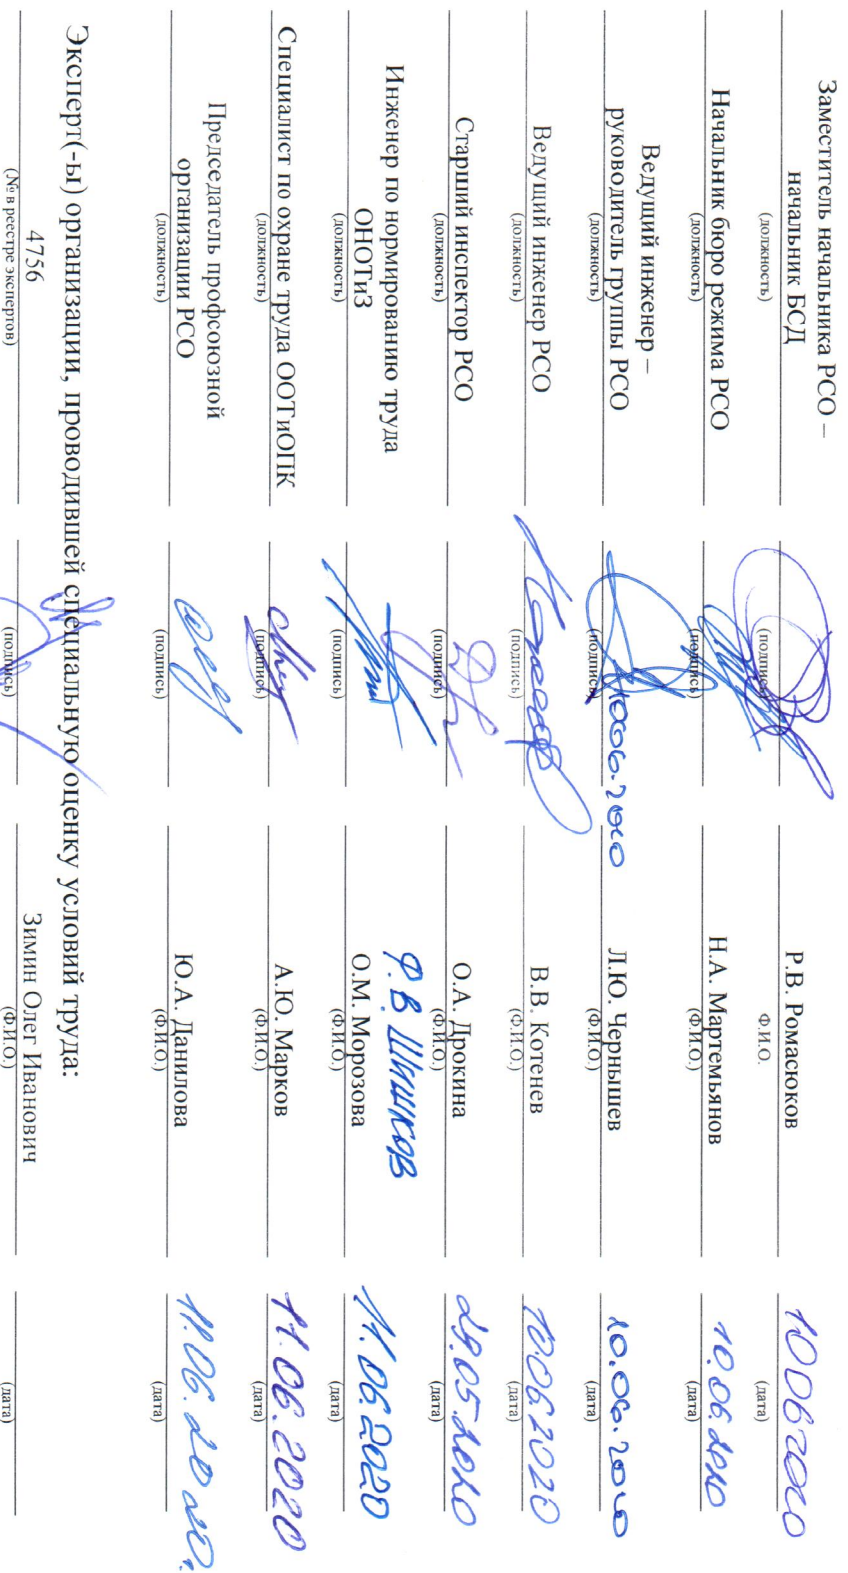 Заместитель начальника РСО –
начальник БСД Р.В. Ромасюков 10.06.2020
(должность) (подпись) Ф.И.О. (дата)
Начальник бюро режима РСО Н.А. Мартемьянов 10.06.2020
(должность) (подпись) (Ф.И.О.) (дата)
Ведущий инженер –
руководитель группы РСО 10.06.2020 Л.Ю. Чернышев 10.06.2020
(должность) (подпись) (Ф.И.О.) (дата)
Ведущий инженер РСО В.В. Котенев 10.06.2020
(должность) (подпись) (Ф.И.О.) (дата)
Старший инспектор РСО О.А. Дрокина 29.05.2020
(должность) (подпись) (Ф.И.О.) (дата)
Ф.В. Шишков
Инженер по нормированию труда
ОНОТиЗ О.М. Морозова 11.06.2020
(должность) (подпись) (Ф.И.О.) (дата)
Специалист по охране труда ООТиОПК А.Ю. Марков 11.06.2020
(должность) (подпись) (Ф.И.О.) (дата)
Председатель профсоюзной
организации РСО Ю.А. Данилова 11.06.2020.
(должность) (подпись) (Ф.И.О.) (дата)
Эксперт(-ы) организации, проводившей специальную оценку условий труда:
4756 Зимин Олег Иванович
(№ в реестре экспертов) (подпись) (Ф.И.О.) (дата)